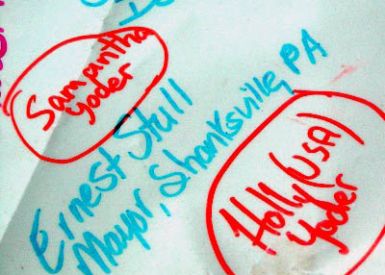 Samantha
Yoder
Ernest Stull
Mayor, Shanksville, PA
Holly (USA)
Yoder